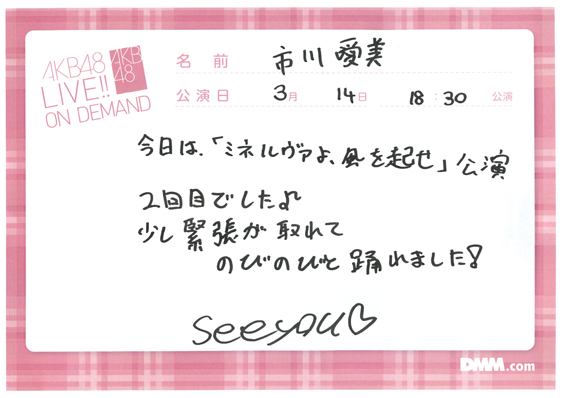 AKB48
LIVE!!
ON DEMAND
AKB
48
名前 市川愛美
公演日 3月 14日 18:30 公演
今日は、「ミネルヴァよ、風を起せ」公演
2回目でした♪
少し緊張が取れて
のびのびと踊れました!
seeyou♡
DMM.com